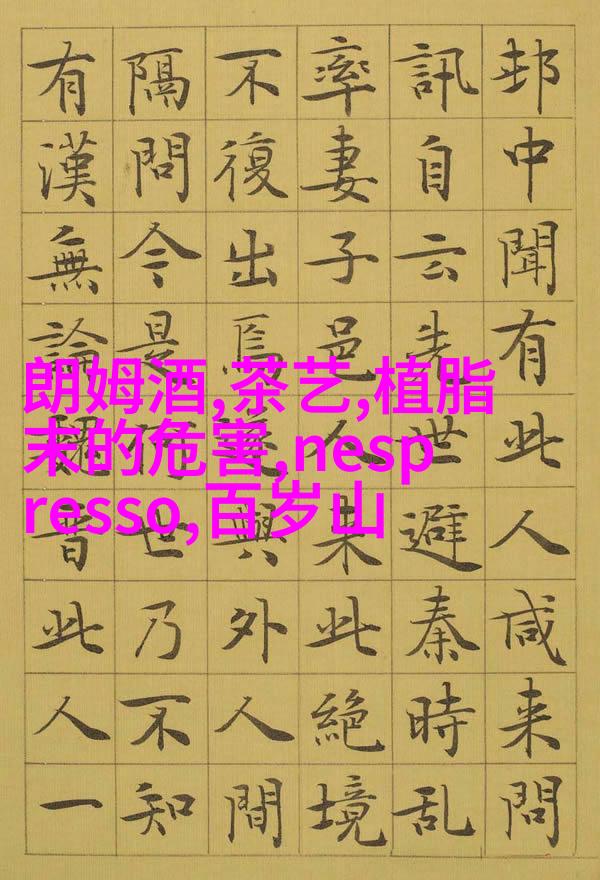 邨中聞有此人咸来問
訊自云先世避秦時乱
率妻子邑人来此絶境
不復出焉遂與外人間
隔問今是何世乃不知
有漢無論魏晋此人一
朗姆酒,茶艺,植脂
末的危害,nesp
resso,百岁山